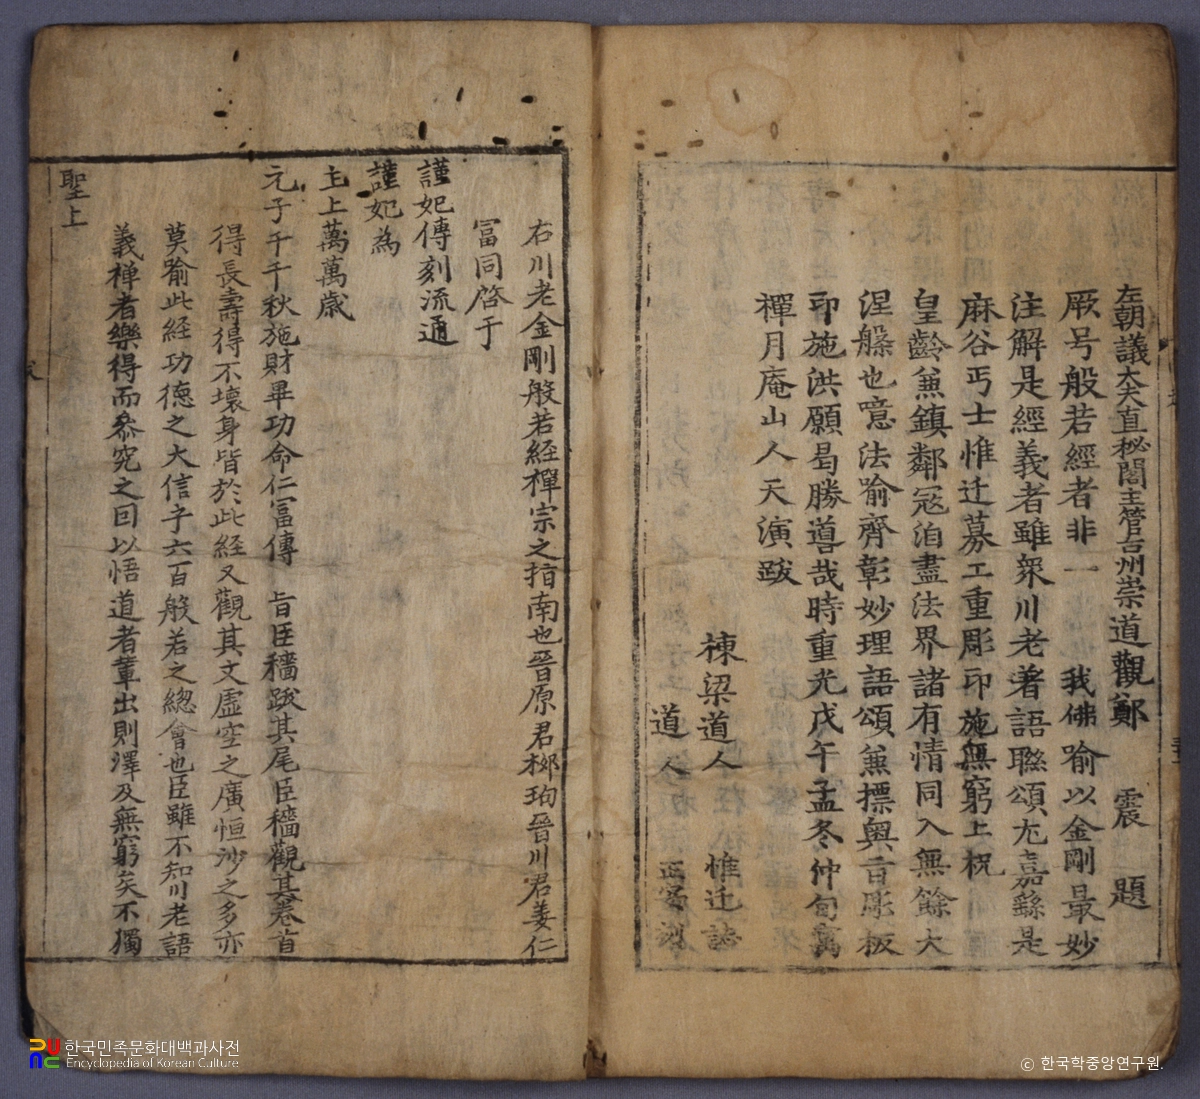 左朝議大夫直秘閣主管台州崇道觀鄭 震 題
厥号般若經者非一 我佛喻以金剛最妙
注解是經義者雖衆川老著語聯頌尤嘉繇是
麻谷丐士惟迁募工重彫印施無窮上祝
皇齡兼鎮鄰冦洎盡法界諸有情同入無餘大
涅槃也噫法喻齊彰妙理語頌兼摽奥旨彫板
印施洪願曷勝噵哉時重光戊午孟冬仲旬寓
禪月庵山人天演跋
棟梁道人 惟迁誌
道人 正寄刻
右川老金剛般若經禪宗之指南也晉原君栁珣晉川君姜仁
冨同啓于
謹妃傳刻流通
謹妃為
主上萬萬歲
元子千千秋施財畢功命仁冨傳 旨臣穡跋其尾臣穡觀其卷首
得長壽得不壞身皆於此経又觀其文虛空之廣恒沙之多亦
莫踰此経功德之大信乎六百般若之緫會也臣雖不知川老語
義禪者樂得而叅究之回以悟道者軰出則澤及無窮矣不獨
聖上
한국민족문화대백과사전
Encyclopedia of Korean Culture
ⓒ 한국학중앙연구원.